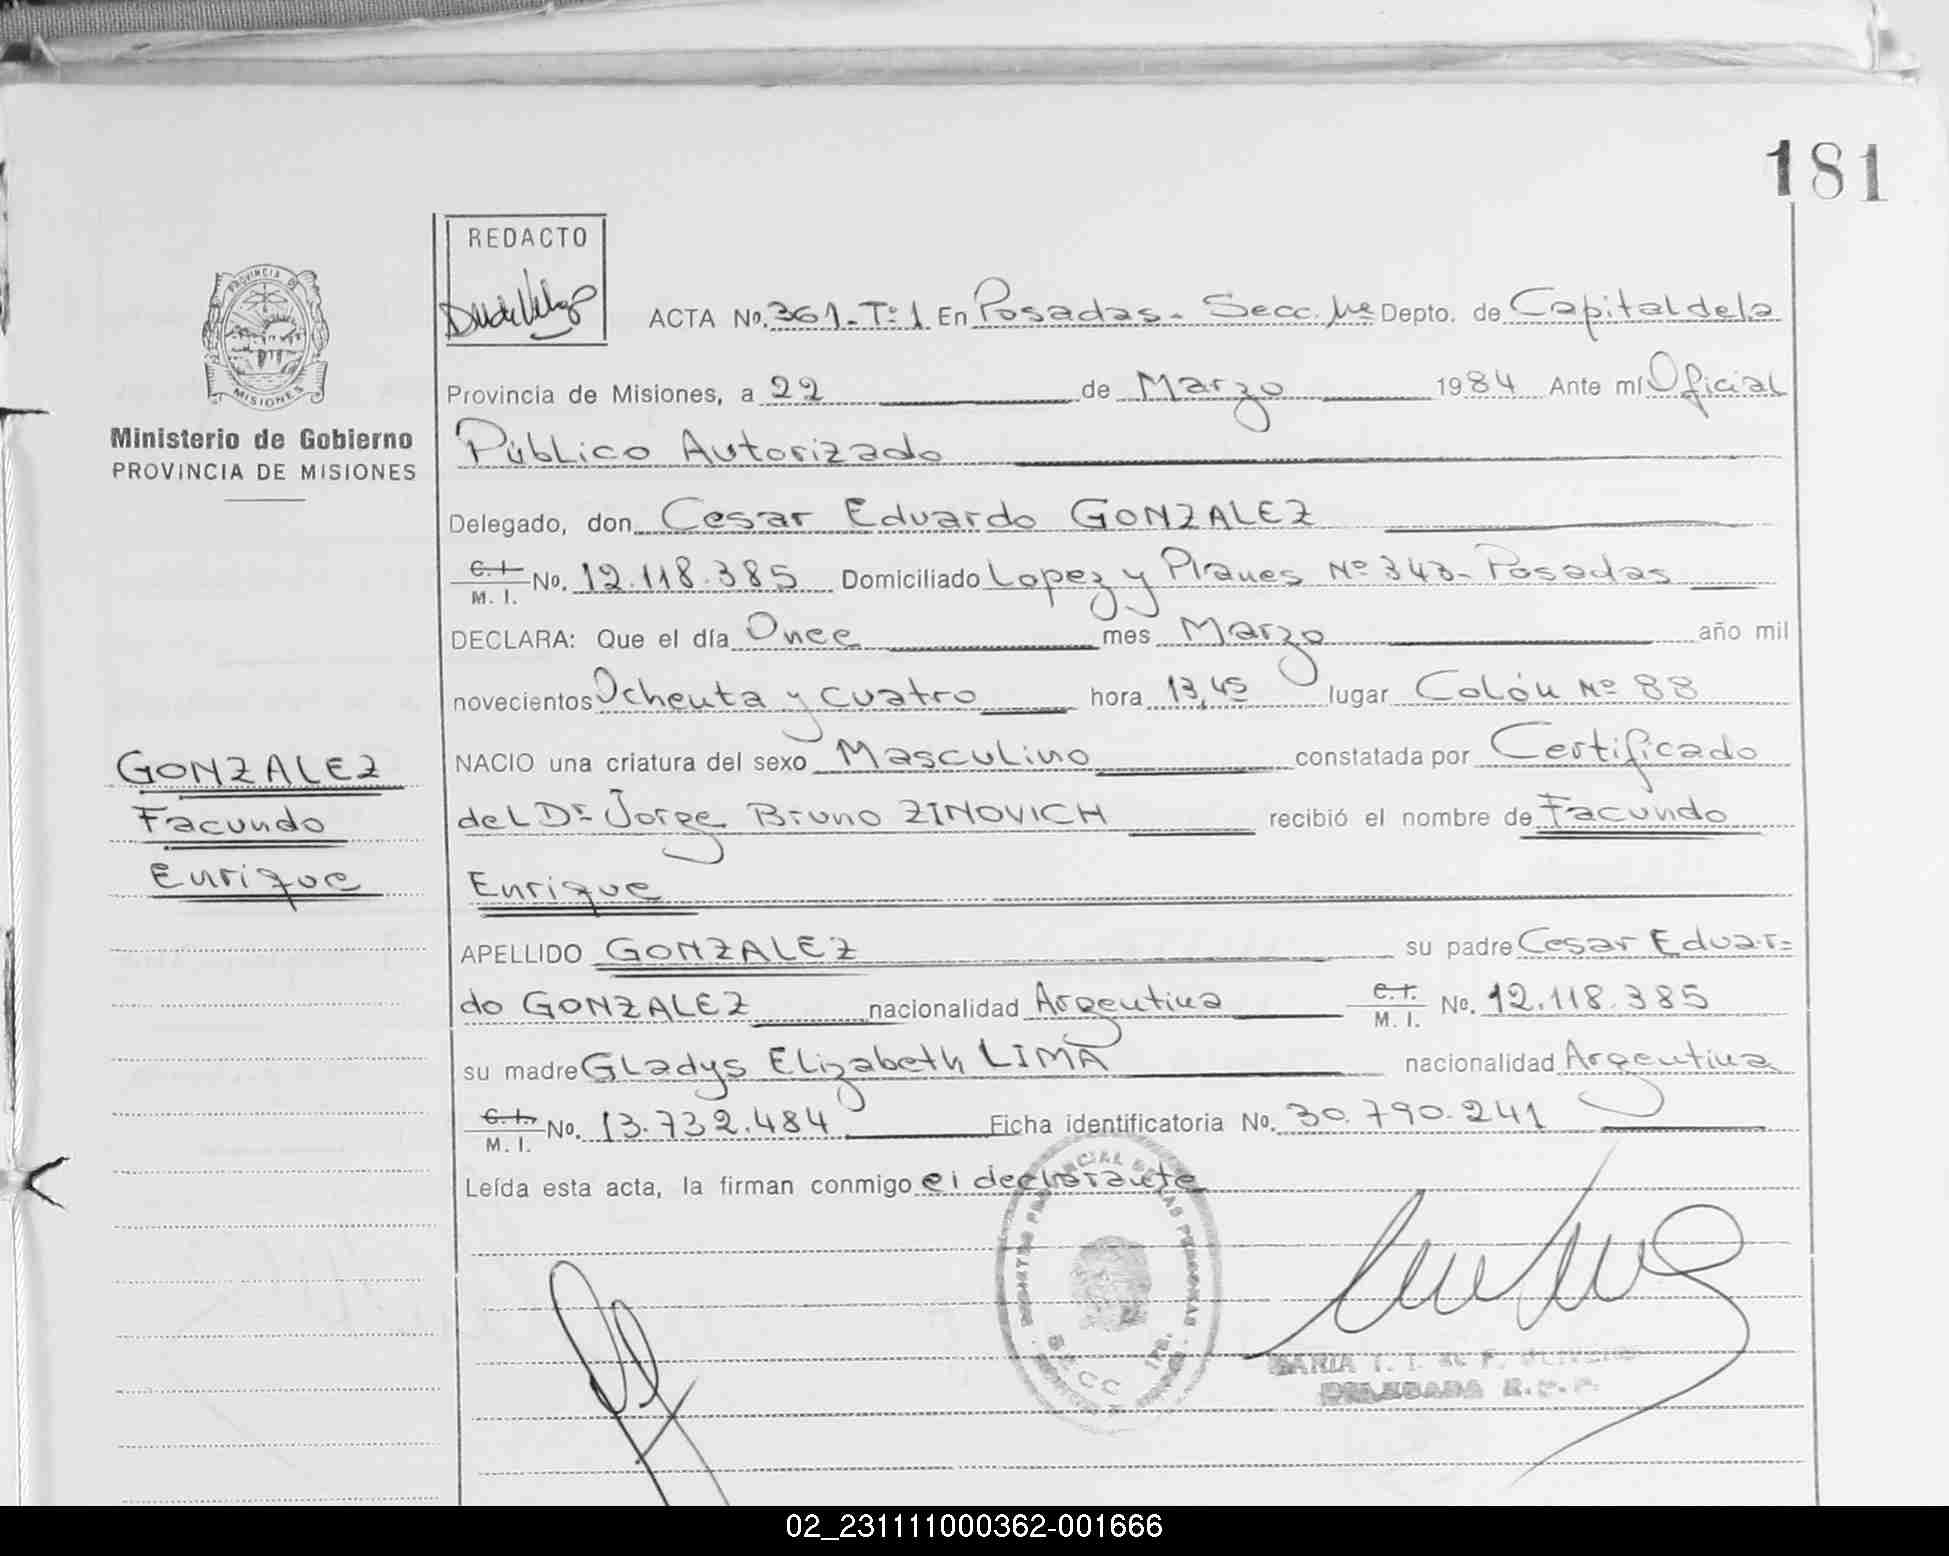 181
REDACTO
PROVINCIA DE
MISIONES
Ministerio de Gobierno
PROVINCIA DE MISIONES
ACTA No. 361.-Tº1 En Posadas - Secc. Depto. de Capital de la
Provincia de Misiones, a 22 de Marzo 1984 Ante mí Oficial
Público Autorizado
Delegado, don Cesar Eduardo GONZALEZ
C. I.
M. I. No. 12.118.385 Domiciliado Lopez y Planes Nº 343 - Posadas
DECLARA: Que el día Once mes Marzo año mil
novecientos Ochenta y cuatro hora 13,45 lugar Colón Nº 88
NACIO una criatura del sexo Masculino constatada por Certificado
del Dr Jorge Bruno ZINOVICH recibió el nombre de Facundo
Enrique
GONZALEZ
Facundo
Enrique
APELLIDO GONZALEZ su padre Cesar Eduar=
do GONZALEZ nacionalidad Argentina C. I.
M. I. No. 12.118.385
su madre Gladys Elizabeth LIMA nacionalidad Argentina
C. I.
M. I. No. 13.732.484 Ficha identificatoria No. 30.790.241
Leída esta acta, la firman conmigo el declarante
SECC 1ra.
MARIA
DELEGADA R.P.P.
02_231111000362-001666